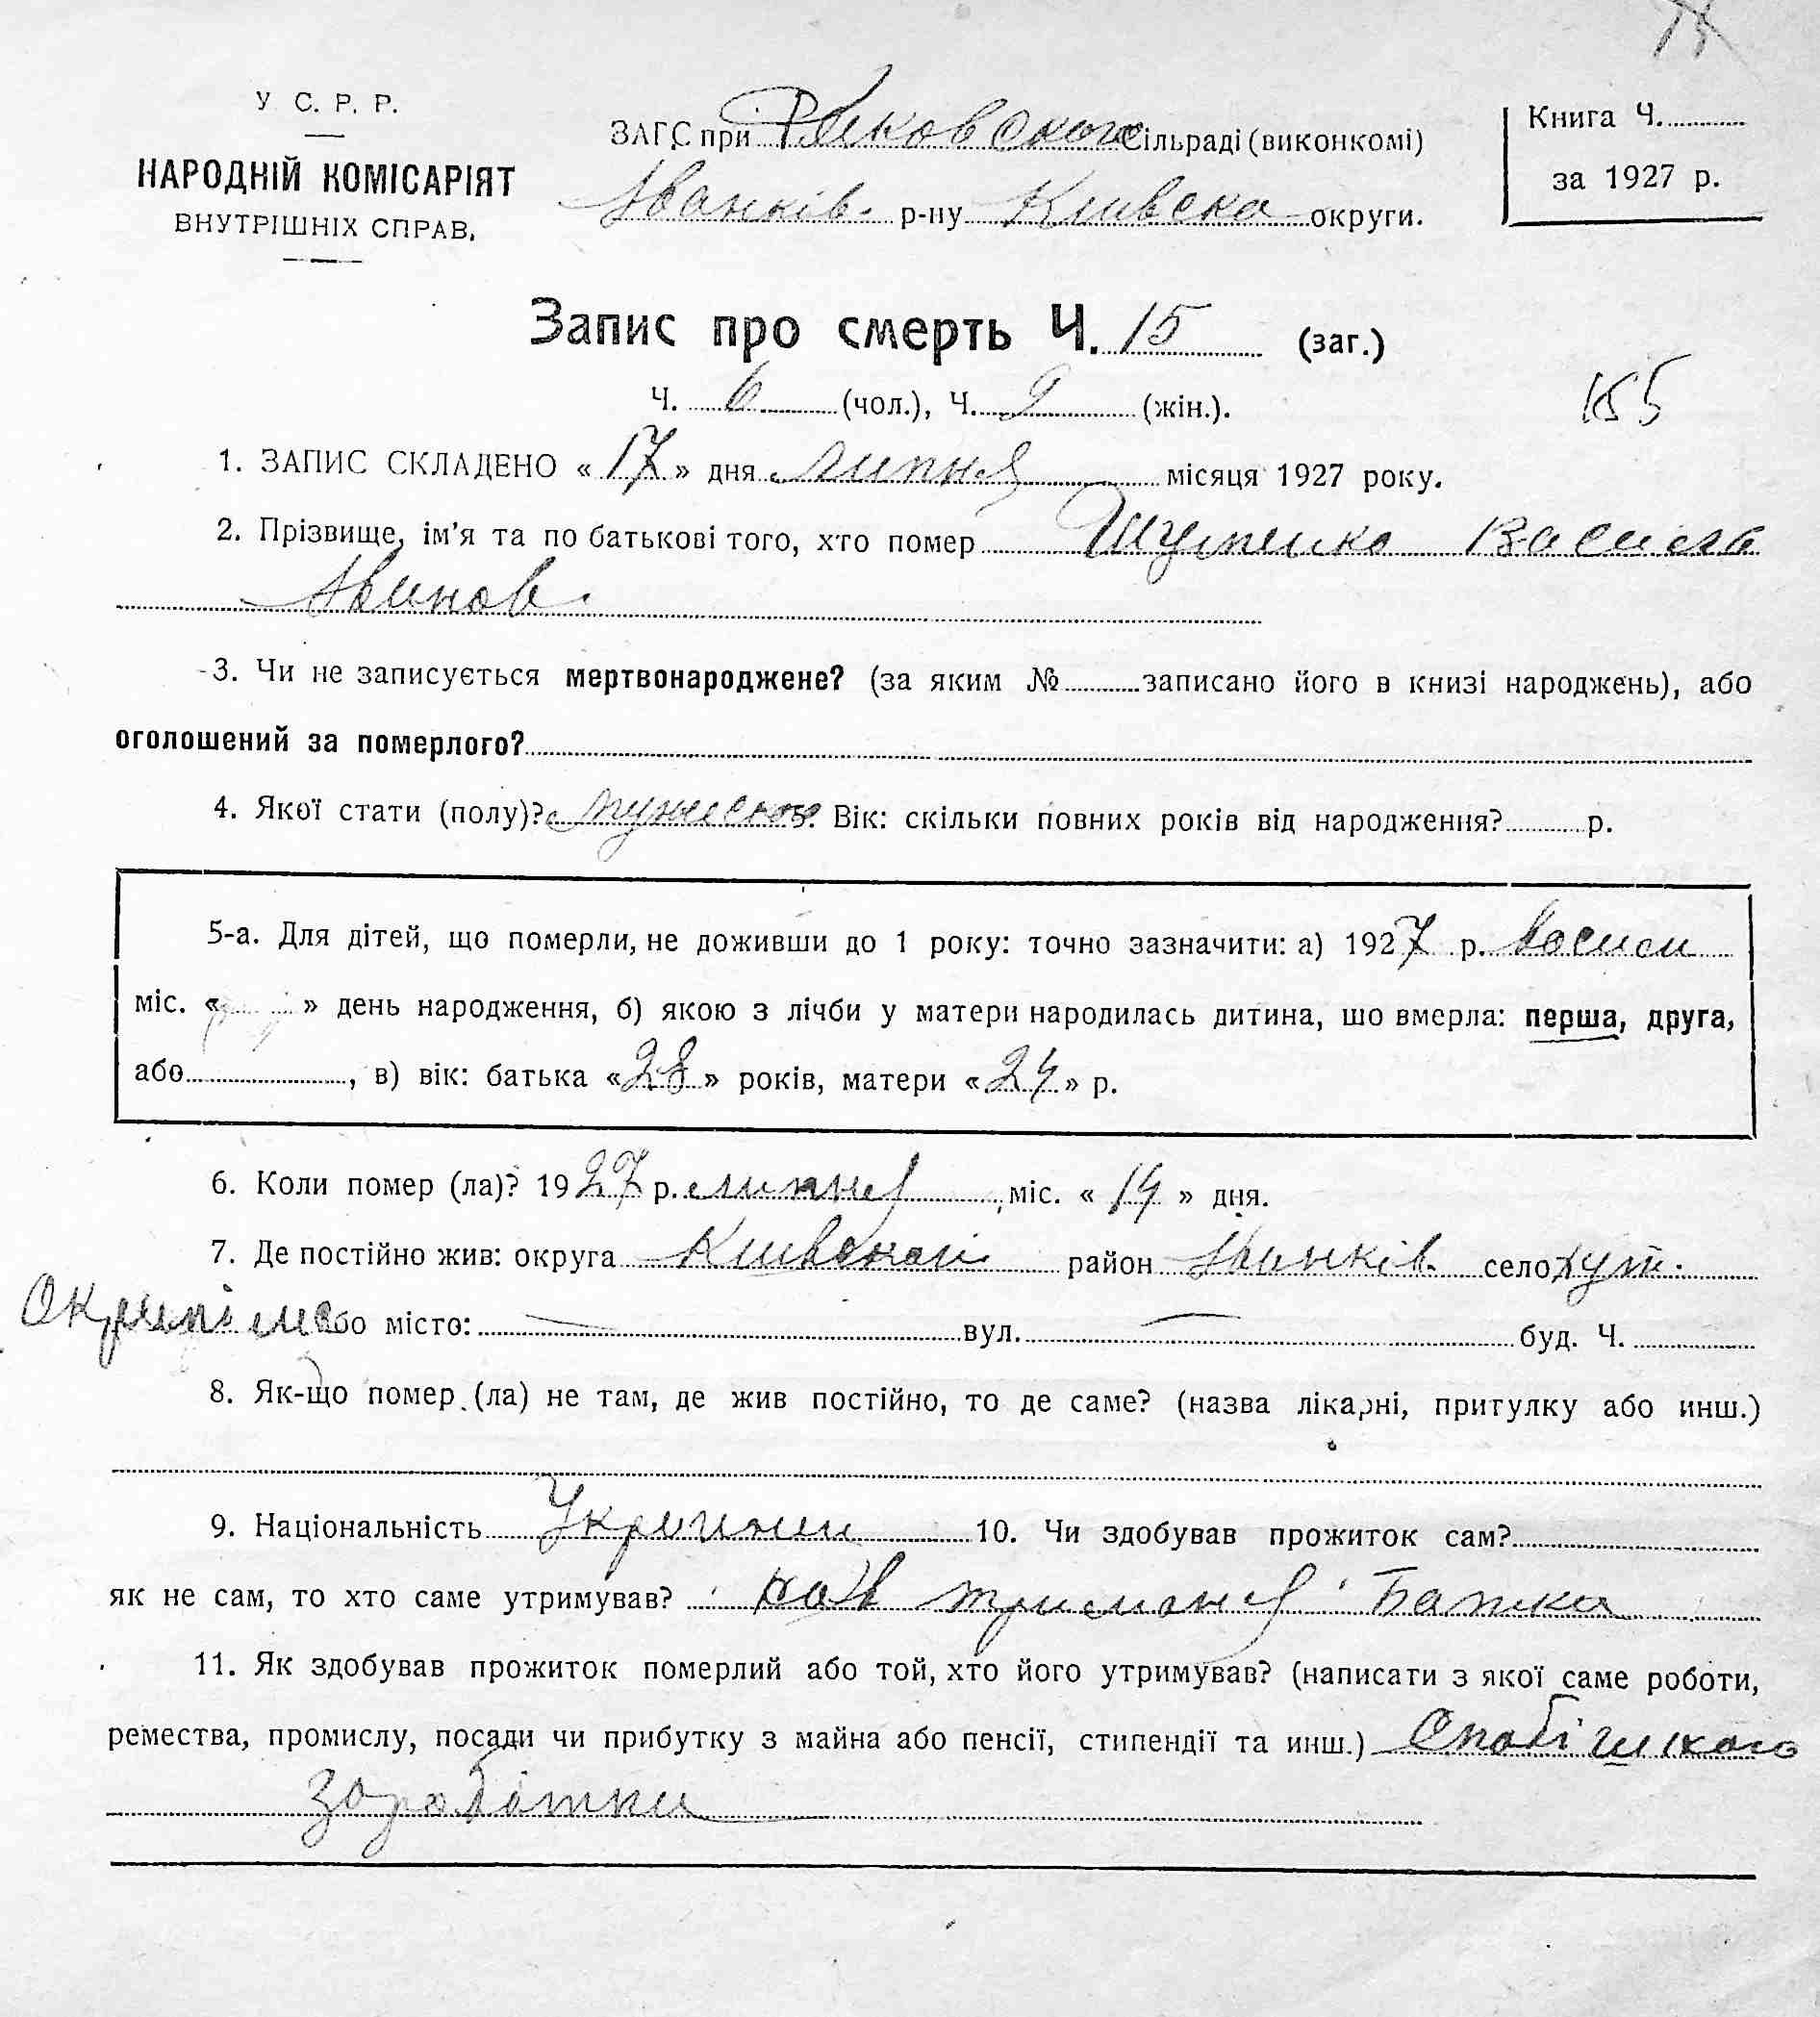 У. С. Р. Р.
НАРОДНІЙ КОМІСАРІЯТ
ВНУТРІШНІХ СПРАВ.
ЗАГС при сільраді (виконкомі)
Іванків. р-ну Київска округи.
Книга Ч.
за 1927 р.
Запис про смерть Ч. 15 (заг.)
Ч. 6 (чол.), Ч. 9 (жін.).
155
1. ЗАПИС СКЛАДЕНО « 17 » дня липня місяця 1927 року.
2. Прізвище, ім'я та по батькові того, хто помер Шутенко
Иванов.
3. Чи не записується мертвонароджене? (за яким № записано його в книзі народжень), або
оголошений за померлого?
4. Якої стати (полу)? Вік: скільки повних років від народження? р.
5-а. Для дітей, що померли, не доживши до 1 року: точно зазначити: а) 1927 р.
міс. « » день народження, б) якою з лічби у матери народилась дитина, шо вмерла: перша, друга,
або , в) вік: батька «28» років, матери «24» р.
6. Коли помер (ла)? 1927 р. липня міс. « 14 » дня.
7. Де постійно жив: округа район Іванків. село хут.
або місто: вул. буд. Ч.
8. Як-що помер (ла) не там, де жив постійно, то де саме? (назва лікарні, притулку або инш.)
9. Національність 10. Чи здобував прожиток сам?
як не сам, то хто саме утримував? Батька
11. Як здобував прожиток померлий або той, хто його утримував? (написати з якої саме роботи,
ремества, промислу, посади чи прибутку з майна або пенсії, стипендії та инш.)